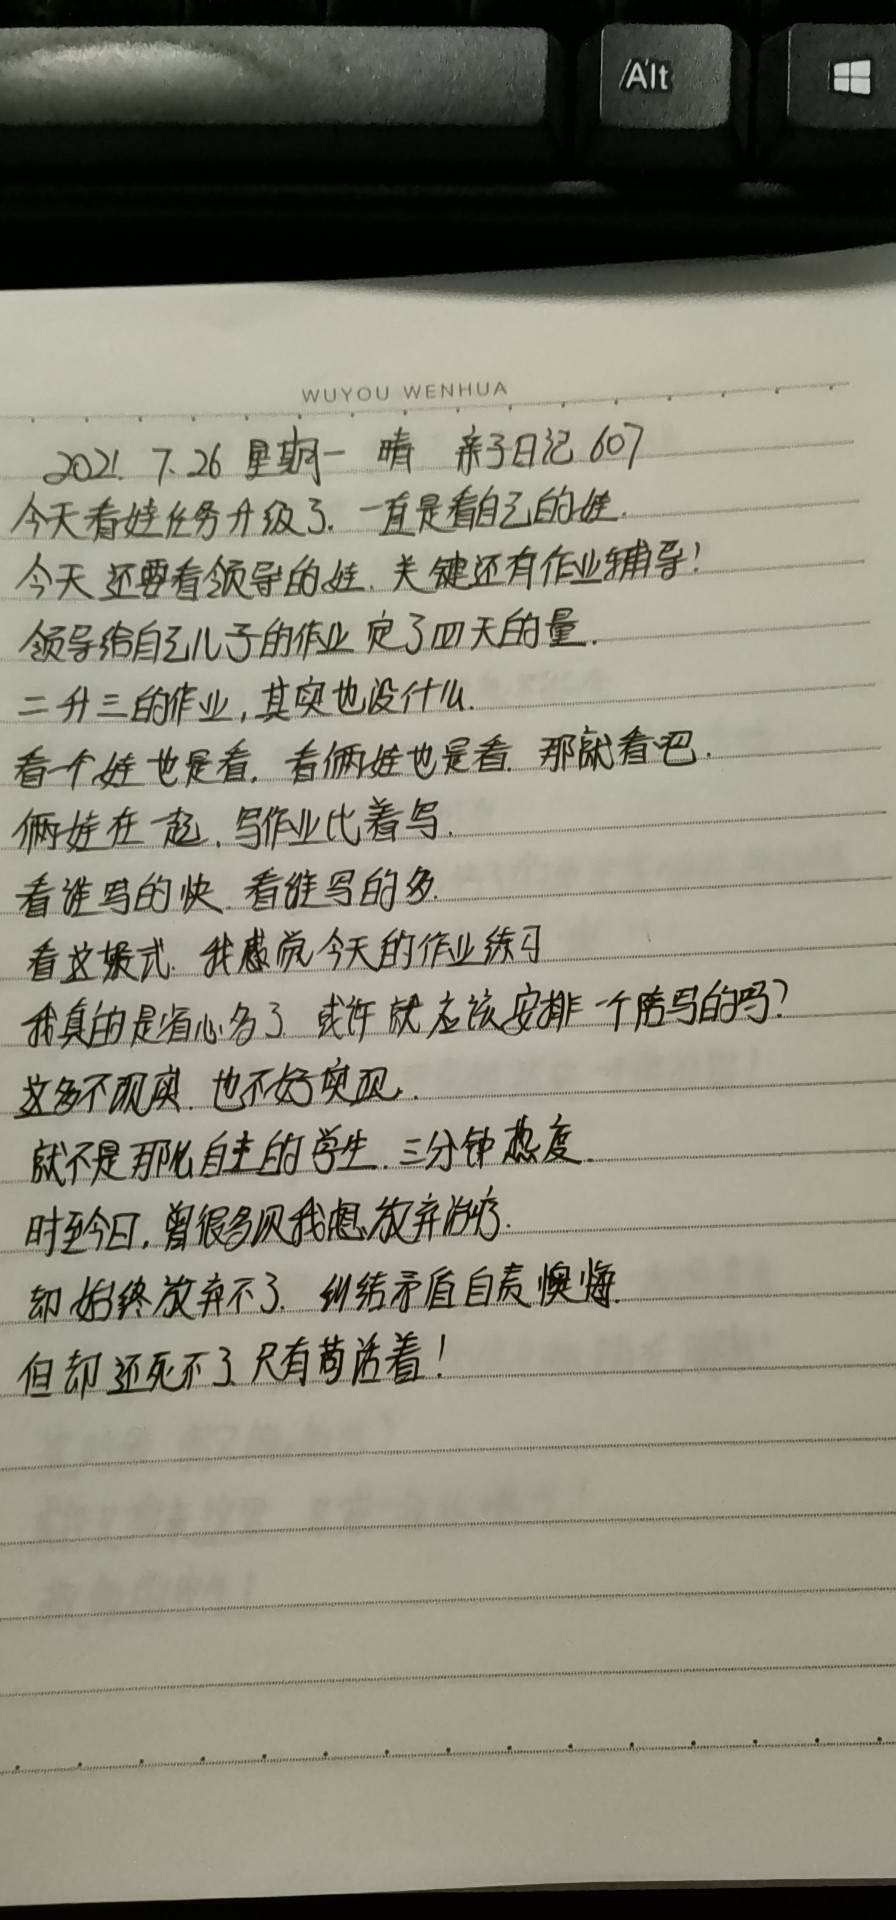 Alt
WUYOU WENHUA
2021. 7. 26 星期一 晴 亲子日记 607
今天看娃任务升级了. 一直是看自己的娃.
今天还要看领导的娃. 关键还有作业辅导!
领导给自己儿子的作业定了四天的量.
二升三的作业, 其实也没什么.
看一个娃也是看. 看俩娃也是看. 那就看吧.
俩娃在一起, 写作业比着写.
看谁写的快. 看谁写的多.
看这架式. 我感觉今天的作业练习
我真的是省心多了. 或许就应该安排一个陪写的吗?
这多不现实. 也不好实现.
就不是那么自主的学生. 三分钟热度.
时至今日, 曾很多次我想放弃治疗.
却始终放弃不了. 纠结矛盾自责懊悔.
但却还死不了. 只有苟活着!